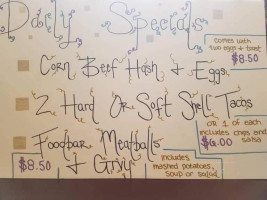 Daily Specials
Corn Beef Hash & Eggs
comes with
two eggs & toast
$8.50
2 Hard OR Soft Shell Tacos
OR 1 of each
includes chips and
salsa
$6.00
Foodbar Meatballs
& Gravy
$8.50
includes
mashed potatoes,
soup or salad